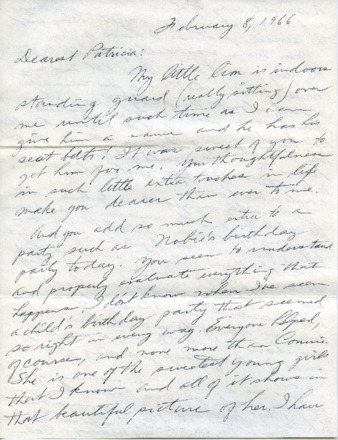 February 8, 1966
Dearest Patricia:
My little lion is indoors
standing guard (really sitting) over
me until such time as I can
give him a name and he has his
seat bolts! It was sweet of you to
get him for me. Your thoughtfulness
in such little extra touches in life
make you dearer than ever to me.
And you add so much extra to a
party such as birthday
party today. You seem to understand
and properly evaluate everything that
happens. I don't know when I've seen
a child's birthday party that seemed
so right in every way. Everyone helped,
of course, and none more than Connie.
She is one of the sweetest young girls
that I know and all of it shows in
that beautiful picture of her, I have